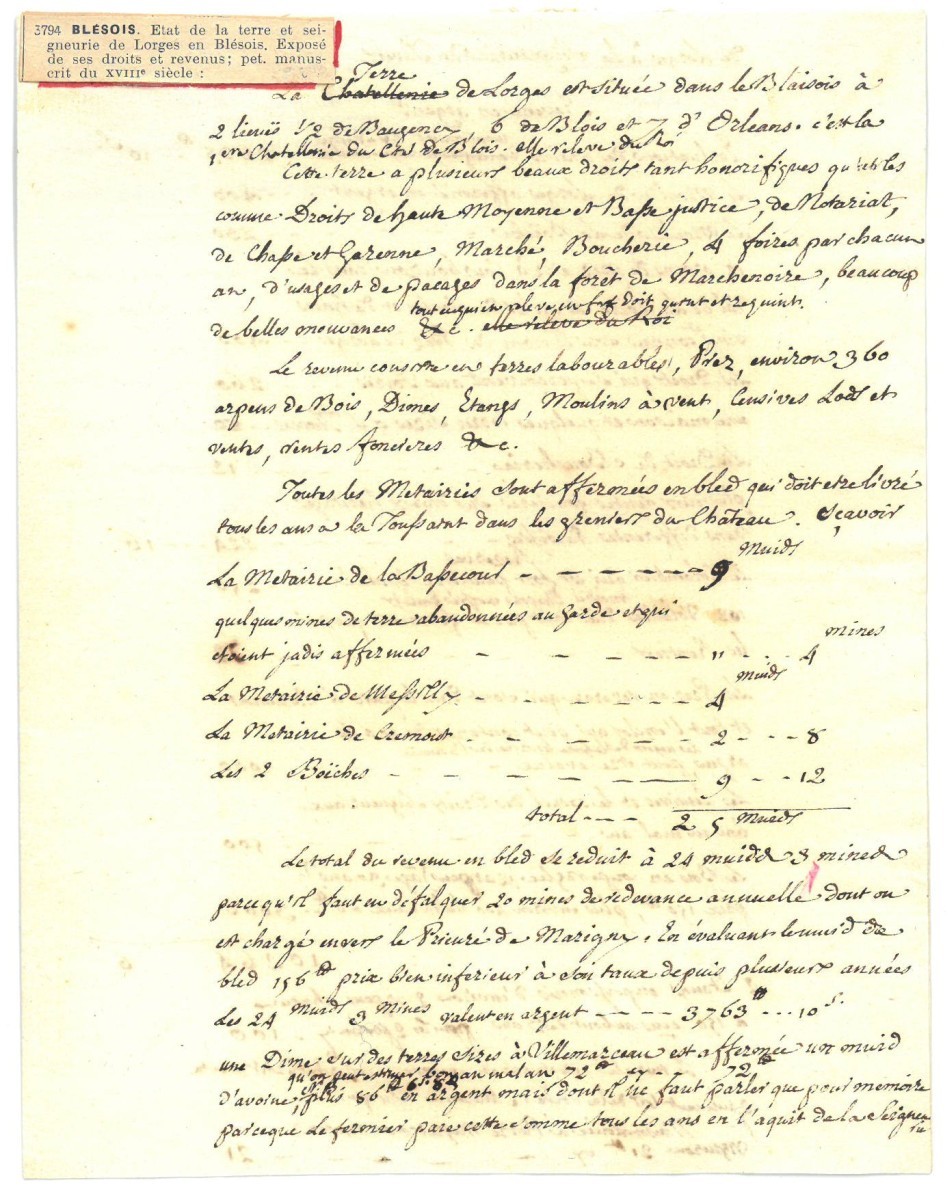 3794 BLÉSOIS. Etat de la terre et sei-
gneurie de Lorges en Blésois. Exposé
de ses droits et revenus; pet. manus-
crit du XVIIIe siècle :
Terre
La Chatellenie de Lorges est située dans le Blaisois à
2 lieuës 1/2 de Baugency, 6 de Blois et 7 d'Orleans. c'est la
1ere Chatellenie du Cté de Blois. elle releve du Roi
Cette terre a plusieurs beaux droits tant honorifiques qu'utiles
comme Droits de haute Moyenne et Basse justice, de Notariat,
de Chasse et Garenne, Marché, Boucherie, 4 foires par chacun
an, d'usages et de pacages dans la forêt de Marchenoire, beaucoup
tout ce qui en releve en fief doit quint et requint.
de belles mouvances &c. elle releve du Roi
Le revenu consiste en terres labourables, Prez, environ 360
arpens de Bois, Dimes, Etangs, Moulins à vent, Censives Lods et
ventes, rentes foncieres &c.
Toutes les Metairies sont affermées en bled qui doit etre livré
tous les ans a la Toussaint dans les greniers du Château. Sçavoir
Muids
La Metairie de la Bassecour - - - - - - 9
quelques mines de terre abandonnées au Garde et qui
mines
etoient jadis affermées - - - - - " - - - 4
muids
La Metairie de Messilly - - - - - - 4
La Metairie de Cremout - - - - - - 2 - - - 8
Les 2 Boëches - - - - - 9 - - - 12
total - - - 25 Muids
Le total du revenu en bled se reduit à 24 muids 3 mines
parcequ'il faut en défalquer 20 mines de redevance annuelle dont on
est chargé envers le Prieuré de Marigny. En évaluant le muid de
bled 156 tt prix bien inferieur à son taux depuis plusieurs années
Les 24 Muids 3 Mines valent en argent - - - - 3763 tt - - - 10 s.
une Dime sur des terres sizes à Villemarceau est affermée un muid
qu'on peut estimer bon an mal an 72 tt cy - - 72 tt
d'avoine, plus 86 tt en argent mais dont il ne faut parler que pour mémoire
parceque le fermier paye cette somme tous les ans en l'aquit de la Seigneurie